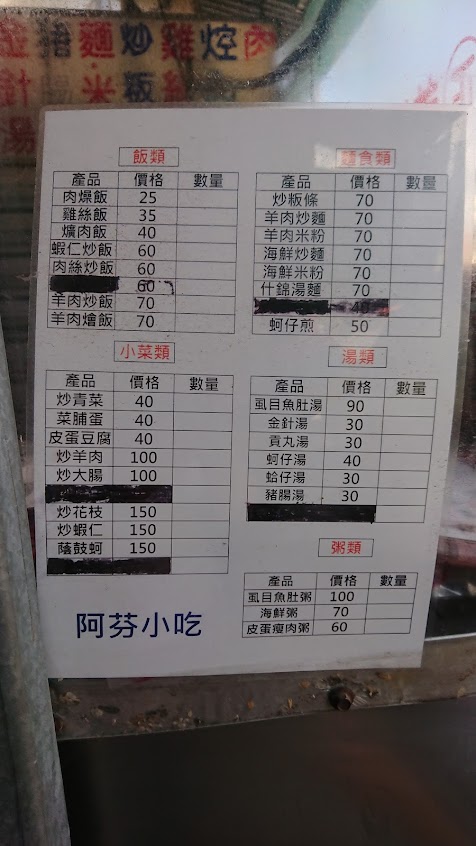 麵炒雞焢肉
飯類
產品 價格 數量
肉燥飯 25
雞絲飯 35
爌肉飯 40
蝦仁炒飯 60
肉絲炒飯 60
60
羊肉炒飯 70
羊肉燴飯 70
麵食類
產品 價格 數量
炒粄條 70
羊肉炒麵 70
羊肉米粉 70
海鮮炒麵 70
海鮮米粉 70
什錦湯麵 70
40
蚵仔煎 50
小菜類
產品 價格 數量
炒青菜 40
菜脯蛋 40
皮蛋豆腐 40
炒羊肉 100
炒大腸 100
炒花枝 150
炒蝦仁 150
蔭鼓蚵 150
湯類
產品 價格 數量
虱目魚肚湯 90
金針湯 30
貢丸湯 30
蚵仔湯 40
蛤仔湯 30
豬腸湯 30
粥類
產品 價格 數量
虱目魚肚粥 100
海鮮粥 70
皮蛋瘦肉粥 60
阿芬小吃